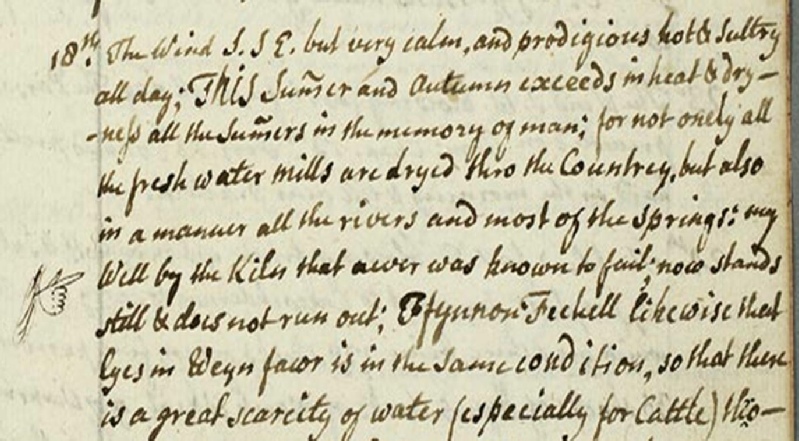 18th. The Wind S. S E. but very calm, and prodigious hot & sultry
all day; THIS Sum̃er and Autumn exceeds in heat & dry-
-ness all the Sum̃ers in the memory of man; for not onely all
the fresh water mills are dryed thro the Countrey, but also
in a manner all the rivers and most of the springs: my
Well by the Kiln that never was known to fail, now stands
still & does not run out; Ffynnon Fechell likewise that
lyes in Weyn fawr is in the same condition, so that there
is a great scarcity of water (especially for Cattle) thro-